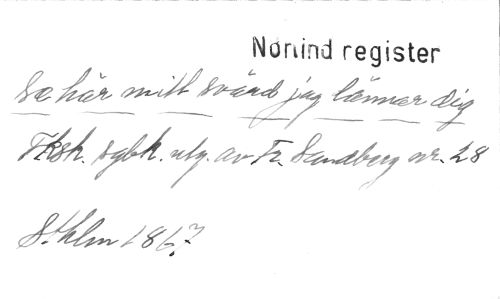 Nörlind register
Se här mitt svärd jag lämnar dig
Fksk. sgbk. utg. av Fr. Sandberg nr. 28
Sthlm 1867